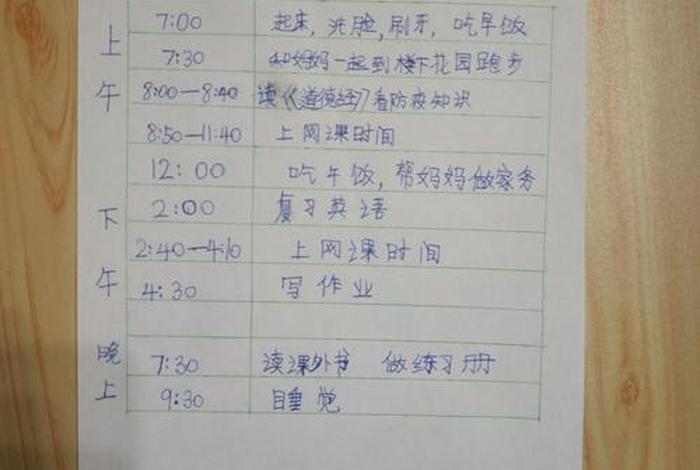 上午
7:00 起床,洗脸,刷牙,吃早饭
7:30 和妈妈一起到楼下花园跑步
8:00—8:40 读《道德经》看防疫知识
8:50—11:40 上网课时间
12:00 吃午饭,帮妈妈做家务
下午
2:00 复习英语
2:40—4:10 上网课时间
4:30 写作业
晚上
7:30 读课外书 做练习册
9:30 睡觉